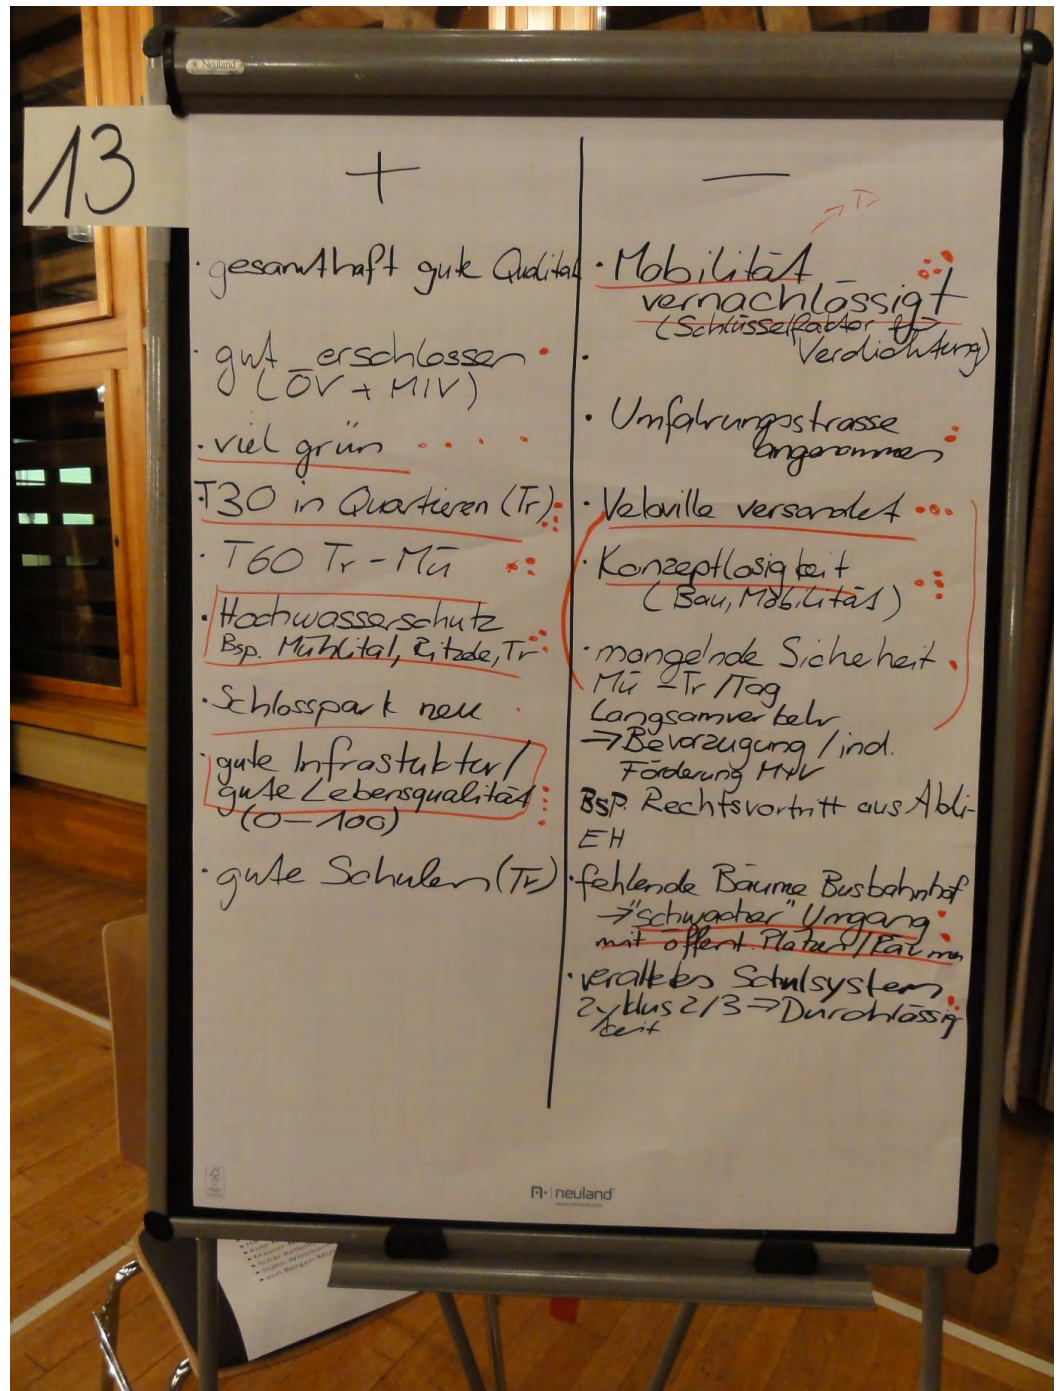 Neuland
13
+
· gesamthaft gute Qualität
· gut erschlossen
(ÖV + MIV)
· viel grün
· T30 in Quartieren (Tr)
· T60 Tr - Mü
· Hochwasserschutz
Bsp. Mühlital, Ritzele, Tr
· Schlosspark neu
· gute Infrastuktur/
gute Lebensqualität
(0-100)
· gute Schulen (Tr)
—
→ Tr
· Mobilität
vernachlässigt
(Schlüsselfaktor für
Verdichtung)
·
· Umfahrungsstrasse
angenommen
· Veloville versandet
· Konzeptlosigkeit
(Bau, Mobilität)
· mangelnde Sicherheit
Mü - Tr / Täg
Langsamverkehr
→ Bevorzugung / ind.
Förderung MIV
Bsp. Rechtsvortritt aus Äbli-
EH
· fehlende Bäume Busbahnhof
→ "schwacher" Umgang
mit öffent. Plätzen / Räumen
· veraltetes Schulsystem
Zyklus 2/3 → Durchlässig
keit
neuland